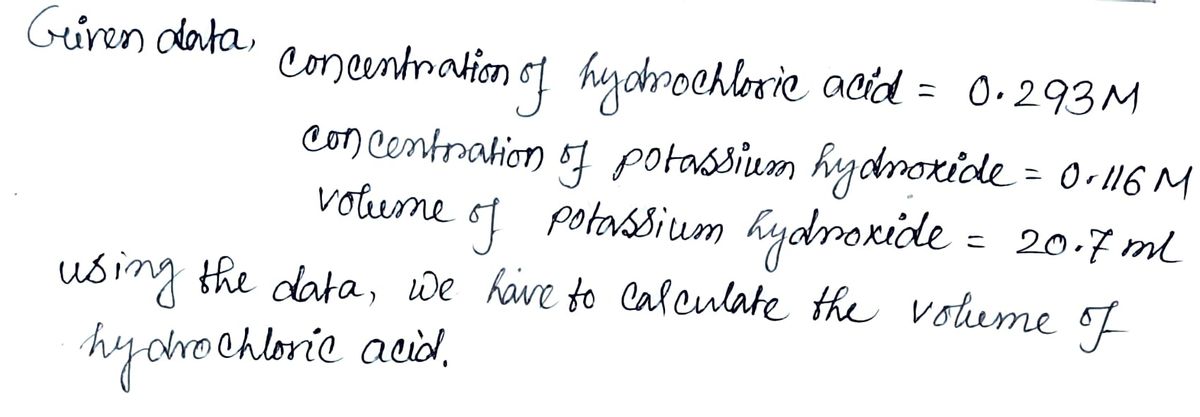 Given data,
concentration of hydrochloric acid = 0.293 M
concentration of potassium hydroxide = 0.116 M
volume of potassium hydroxide = 20.7 ml
using the data, we have to calculate the volume of
hydrochloric acid.